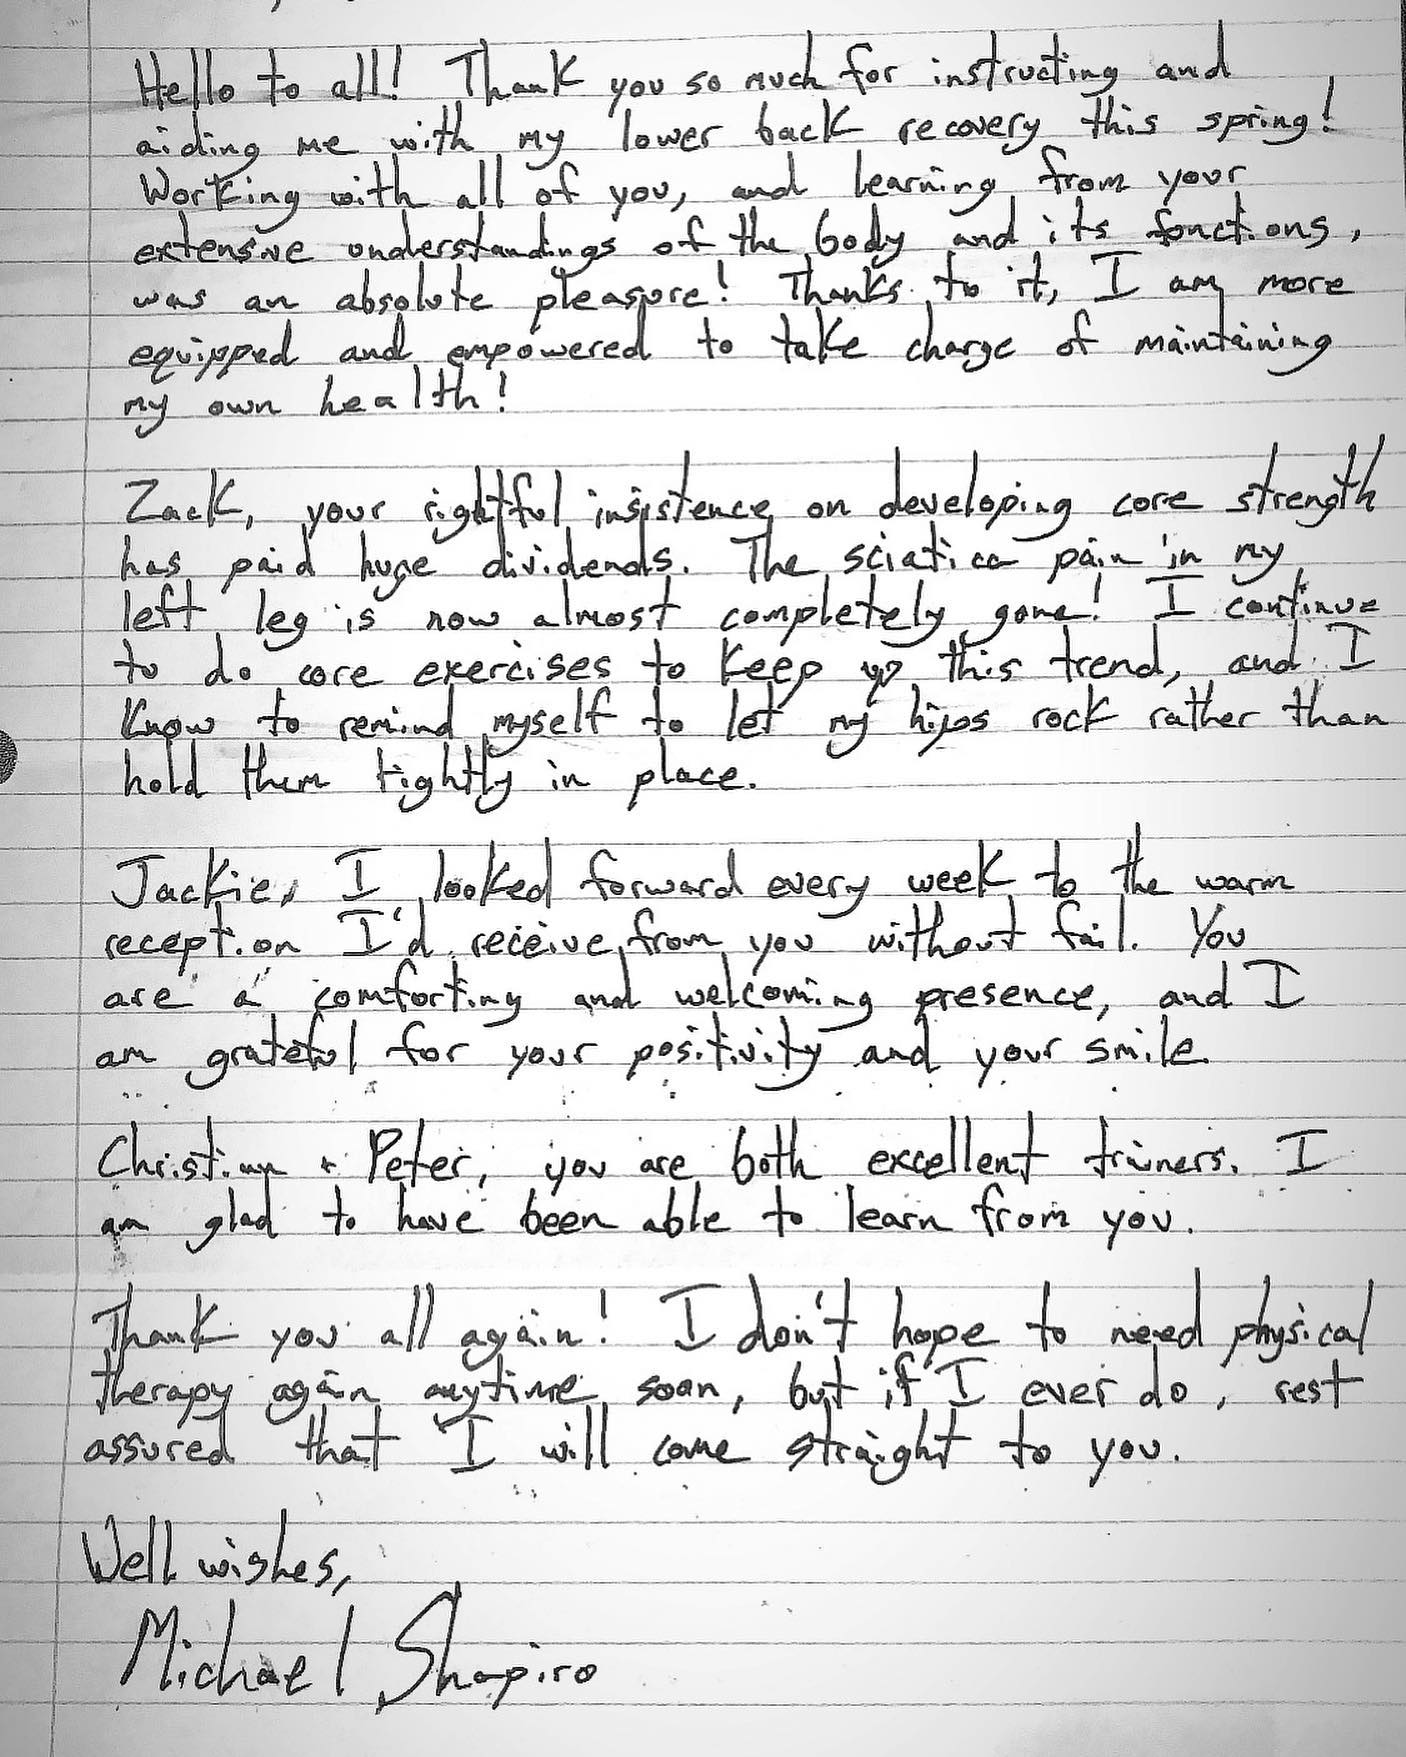 Hello to all! Thank you so much for instructing and
aiding me with my lower back recovery this spring!
Working with all of you, and learning from your
extensive understandings of the body and its functions,
was an absolute pleasure! Thanks to it, I am more
equipped and empowered to take charge of maintaining
my own health!
Zack, your rightful insistence on developing core strength
has paid huge dividends. The sciatica pain in my
left leg is now almost completely gone! I continue
to do core exercises to keep up this trend, and I
know to remind myself to let my hips rock rather than
hold them tightly in place.
Jackie, I looked forward every week to the warm
reception I'd receive from you without fail. You
are a comforting and welcoming presence, and I
am grateful for your positivity and your smile.
Christian + Peter, you are both excellent trainers. I
am glad to have been able to learn from you.
Thank you all again! I don't hope to need physical
therapy again anytime soon, but if I ever do, rest
assured that I will come straight to you.
Well wishes,
Michael Shapiro